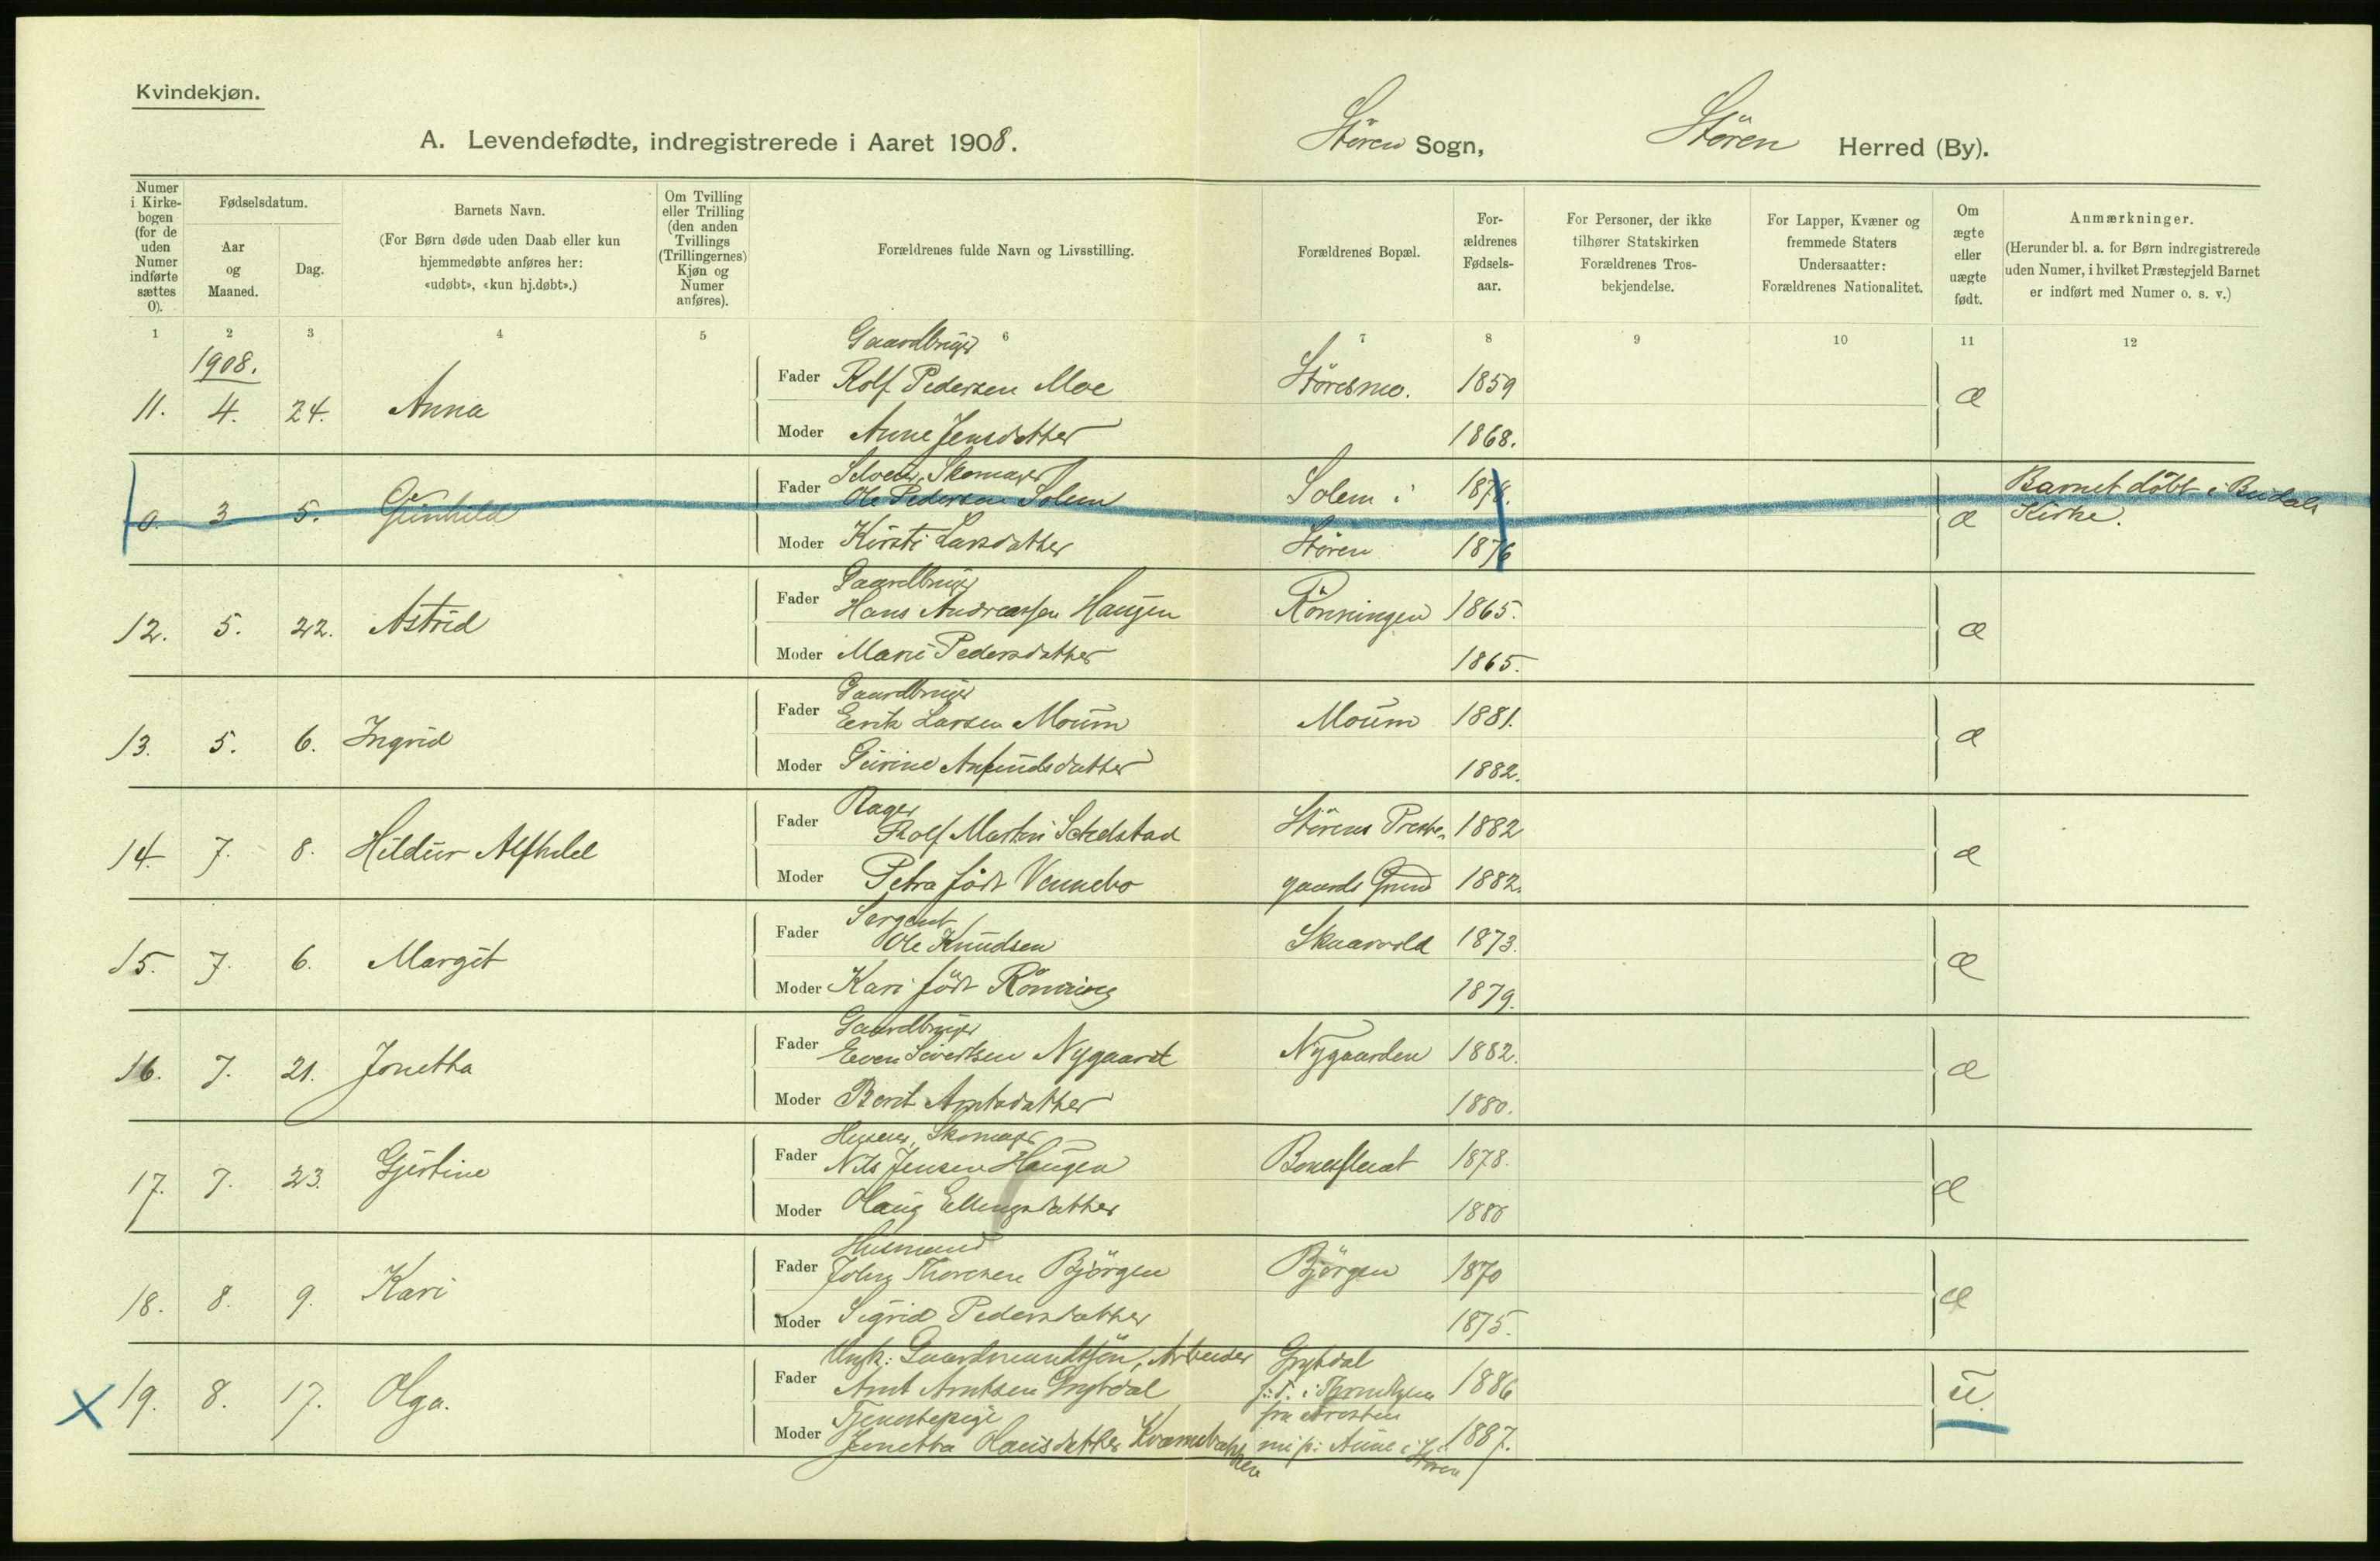 Kvindekjøn.
A. Levendefødte, indregistrerede i Aaret 1908.
Stören Sogn, Stören Herred (By).
Numer i Kirke-bogen (for de uden Numer indførte sættes 0).
Fødselsdatum.
Aar og Maaned.
Dag.
Barnets Navn.
(For Børn døde uden Daab eller kun hjemmedøbte anføres her: «udøbt», «kun hj.døbt».)
Om Tvilling eller Trilling (den anden Tvillings (Trillingernes) Kjøn og Numer anføres).
Forældrenes fulde Navn og Livsstilling.
Forældrenes Bopæl.
For-ældrenes Fødsels-aar.
For Personer, der ikke tilhører Statskirken Forældrenes Tros-bekjendelse.
For Lapper, Kvæner og fremmede Staters Undersaatter: Forældrenes Nationalitet.
Om ægte eller uægte født.
Anmærkninger.
(Herunder bl. a. for Børn indregistrerede uden Numer, i hvilket Præstegjeld Barnet er indført med Numer o. s. v.)
1 2 3 4 5 6 7 8 9 10 11 12
1908.
Gaardbruger
11. 4. 24. Anna Fader Rolf Pedersen Moe Størenmo. 1859 æ
Moder Anne Jensdatter 1868.
Selveier, Skomager
0. 3 5. Gunhild Fader Ole Pedersen Solem Solem i 1878. æ Barnet döbt i Budals Kirke.
Moder Kirsti Larsdatter Stören 1876
Gaardbruger
12. 5. 22. Astrid Fader Hans Andreassen Haugen Rönningen 1865. æ
Moder Marie Pedersdatter 1865.
Gaardbruger
13. 5. 6. Ingrid Fader Eerik Larsen Moum Moum 1881. æ
Moder Gurine Anfindsdatter 1882.
Bager
14. 7. 8. Hildur Alfhild Fader Rolf Martin Schelstad Störens Preste- 1882 æ
Moder Petra født Vennebo gaards Grund 1882.
Sergeant
15. 7. 6. Margit Fader Ole Knudsen Skaarvold 1873. æ
Moder Kari född Rönning 1879.
Gaardbruger
16. 7. 21. Jonetha Fader Even Sivertsen Nygaard Nygaarden 1882. æ
Moder Berit Arntsdatter 1880.
Skomager
17. 7. 23. Gjertine Fader Nils Jensen Haugen 1878. æ
Moder Olaug Ellingsdatter 1880
Husmand
18. 8. 9. Kari Fader John Thoresen Björgen Björgen 1870 æ
Moder Sigrid Pedersdatter 1875.
Ungk: Gaardmandssön, Arbeider Grytdal
19. 8. 17. Olga. Fader Arnt Arntsen Grytdal 1886 u.
Tjenestepige
Moder Jonetta Olausdatter Kvernbakken 1887.
i Stören